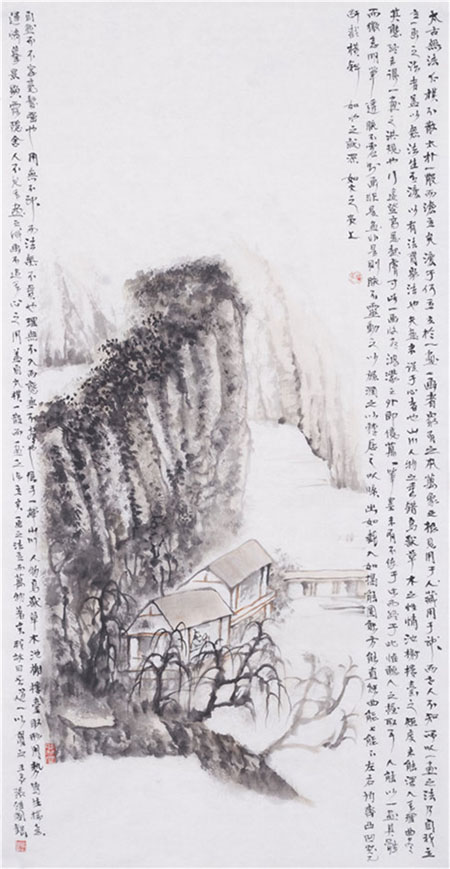 太古無法太樸不散太朴一散而法立矣法于何立立於一畫一畫者眾有之本萬象之根見用于人藏用于神而世人不知所以一畫之法乃自我立
立一畫之法者蓋以無法生有法以有法貫眾法也夫畫者從于心者也山川人物之秀錯鳥獸草木之性情池榭樓臺之矩度未能深入其理曲盡
其態終未得一畫之洪規也行遠登高悉起膚寸此一畫收盡鴻濛之外即億萬萬筆墨未有不始于此而終于此惟聽人之握取耳人能以一畫具體
而微意明筆透腕不虛則畫非是畫非是則腕不靈動之以旋潤之以轉居之以曠出如截入如揭能圓能方能直能曲能上能下左右均齊凸凹突兀
斷截橫斜 如水之就深 如火之炎上
自然而不容毫髮強也 用無不神 而法無不貫也理無不入而態無不盡也 信手一揮山川人物鳥獸草木池榭樓臺取形用勢寫生揣意
運情摹景顯露隱含人不見其畫之成畫不違其心之用蓋自太樸一散而一畫之法立矣一畫之法立而萬物著矣我故曰吾道一以貫之